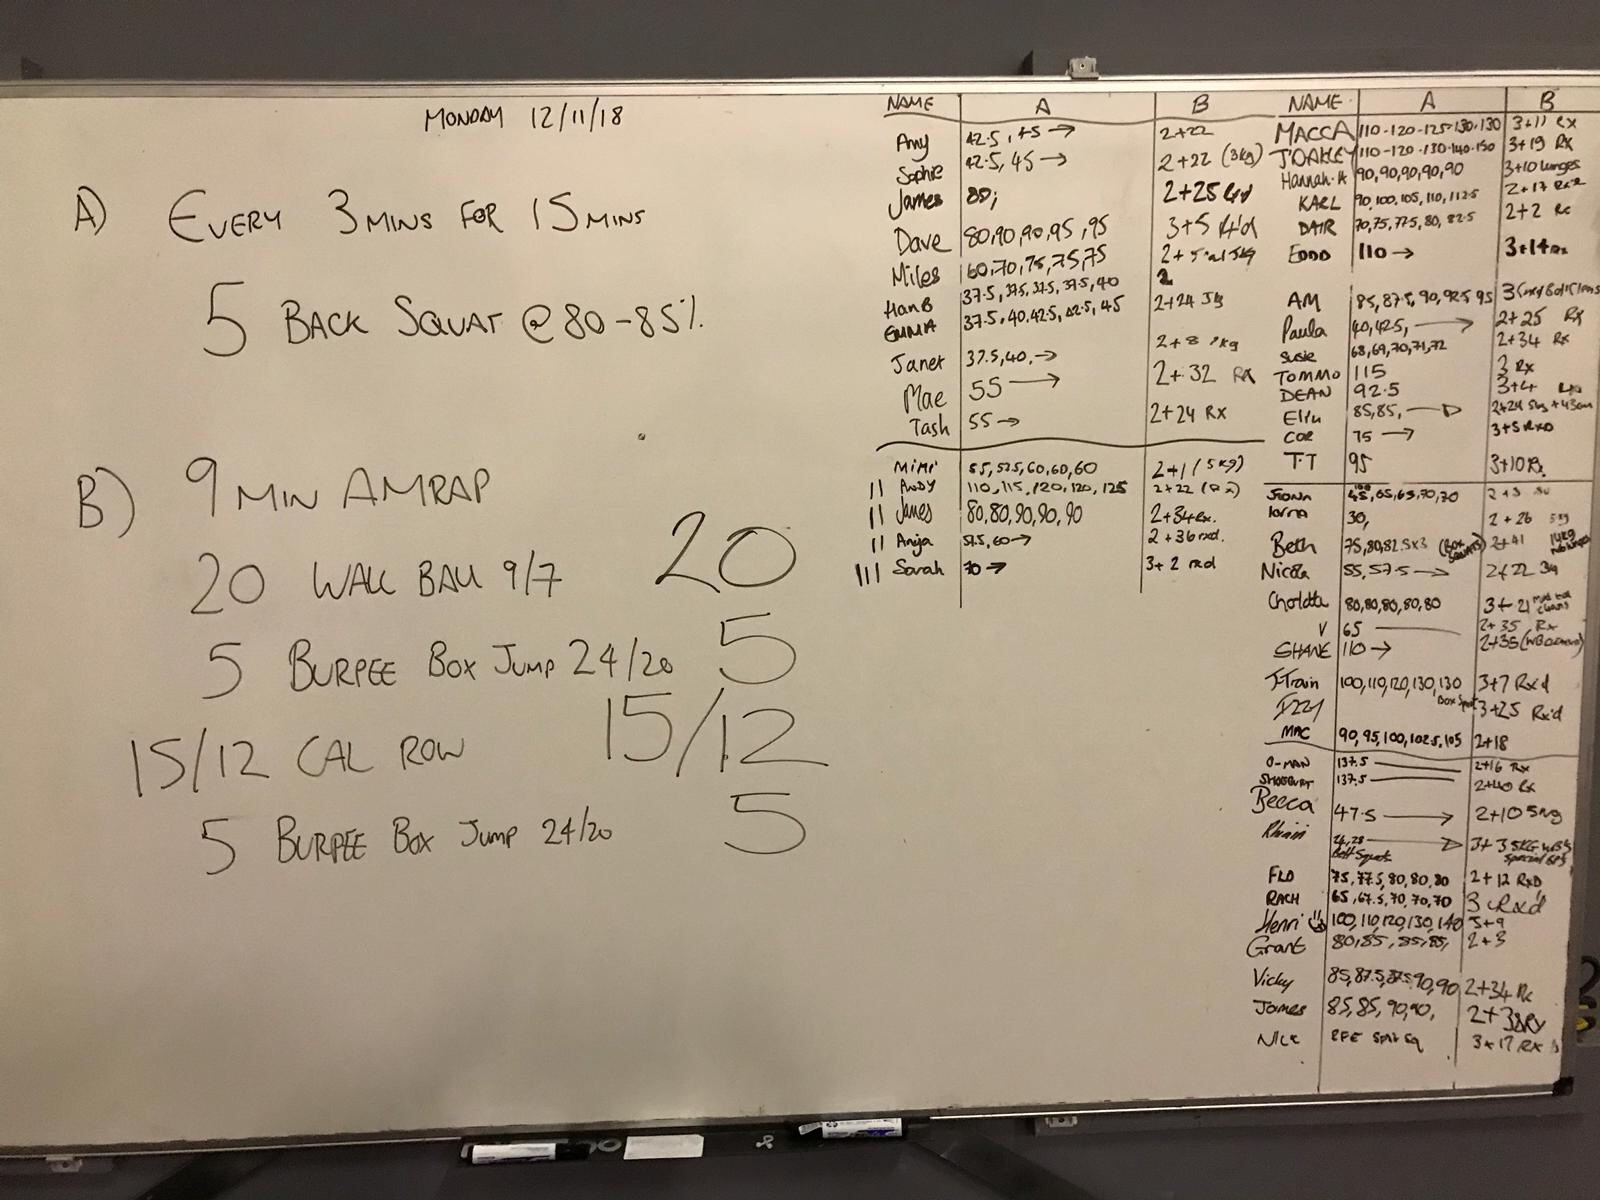 MONDAY 12/11/18
A) EVERY 3 MINS FOR 15 MINS
5 BACK SQUAT @ 80-85%
B) 9 MIN AMRAP
20 WALL BALL 9/7 20
5 BURPEE BOX JUMP 24/20 5
15/12 CAL ROW 15/12
5 BURPEE BOX JUMP 24/20 5
NAME A B
Amy 42.5, 45 → 2+22
Sophie 42.5, 45 → 2+22 (3kg)
James 80, 2+25
Dave 80,90,90,95,95 3+5
Miles 60,70,75,75,75
Han B 37.5, 37.5, 37.5, 37.5, 40
EMMA 37.5, 40, 42.5, 42.5, 45 2+24
Janet 37.5, 40, → 2+8
Mae 55 → 2+32 RX
Tash 55 → 2+24 RX
MIMI 55, 57.5, 60, 60, 60 2+1 (5kg)
II ANDY 110, 115, 120, 120, 125 2+22
II James 80,80,90,90,90 2+34 rx.
II Anja 57.5, 60 → 2+36 rxd.
III Sarah 70 → 3+2 rxd
NAME A B
MACCA 110-120-125-130-130 3+11 RX
JOAKLEY 110-120-130-140-150 3+19 RX
Hannah.H 90,90,90,90,90 3+10 lunges
KARL 90,100,105,110,112.5 2+17
DAIR 70,75,77.5,80,82.5 2+2
EDDD 110 → 3+14 Rx
AM 85,87.5,90,92.5 95 3
Paula 40,42.5, → 2+25 RX
Susie 68,69,70,71,72 2+34 RX
TOMMO 115 3 RX
DEAN 92.5 3+4
85,85, → 2+24 5kg
COR 75 → 3+5 RXD
T.T 95 3+10
65,65,70,70
lorna 30, 2+26
Beth 75,80,82.5x3 (BOX SQUATS) 2+41
Nicola 55,57.5 → 2+22
80,80,80,80,80 3+21
V 65 2+35 RX
SHANE 110 → 2+35
J-Train 100,110,120,130,130 3+7 Rx'd
Box 3+25 Rx'd
MAC 90,95,100,102.5,105 2+18
O-MAN 137.5 2+16 RX
137.5 2+40 RX
Becca 47.5 → 2+10 5kg
→ 3+3 5KG
FLO 75,77.5,80,80,80 2+12 RXD
RACH 65,67.5,70,70,70 3 Rx'd
Henri 100,110,120,130,140 3+9
Grant 80,85,85,85, 2+3
Vicky 85,87.5,87.5,90,90 2+34
James 85,85,90,90, 2+38
NICK RFE SPLIT SQ 3+17 RX